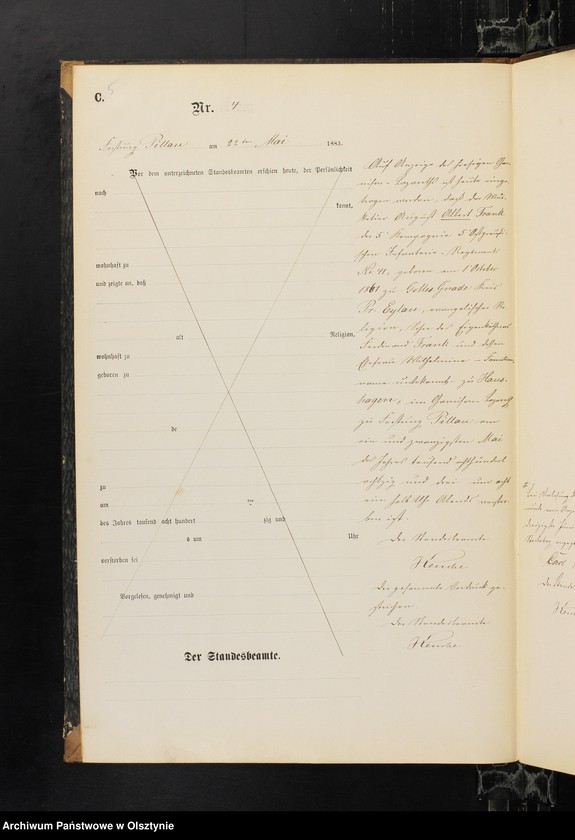 C.
Nr. 4
Festung Pillau am 22ten Mai 1883.
Vor dem unterzeichneten Standesbeamten erschien heute, der Persönlichkeit
nach
kannt,
wohnhaft zu
und zeigte an, daß
alt Religion,
wohnhaft zu
geboren zu
de
zu
am ten
des Jahres tausend acht hundert zig und
um Uhr
verstorben sei
Vorgelesen, genehmigt und
Der Standesbeamte.
Auf Anzeige des hiesigen Gar-
nison-Lazareths ist heute einge-
tragen worden, daß der Mus-
ketier August Albert Frank
der 5 Kompagnie 5 Ostpreußi-
schen Infanterie-Regiments
No 41, geboren am 1 October
1861 zu Gottes Gnade Kreis
Pr. Eylau, evangelischer Re-
ligion, Sohn des Eigenkäthners
Ferdinand Frank und dessen
Ehefrau Wilhelmine – Familien
name unbekannt – zu Hans-
hagen, im Garnison-Lazareth
zu Festung Pillau am
ein und zwanzigsten Mai
des Jahres tausend achthundert
achtzig und drei um acht
ein halb Uhr Abends verstor-
ben ist.
Der Standesbeamte
Der gesammte Vordruck ge-
strichen
Der Standesbeamte
Archiwum Państwowe w Olsztynie